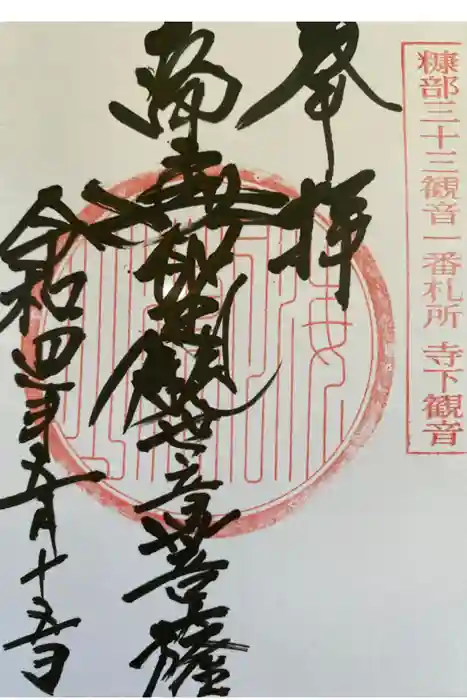 糠部三十三観音一番札所 寺下観音
奉拝
南無観世音菩薩
令和四年五月十五日